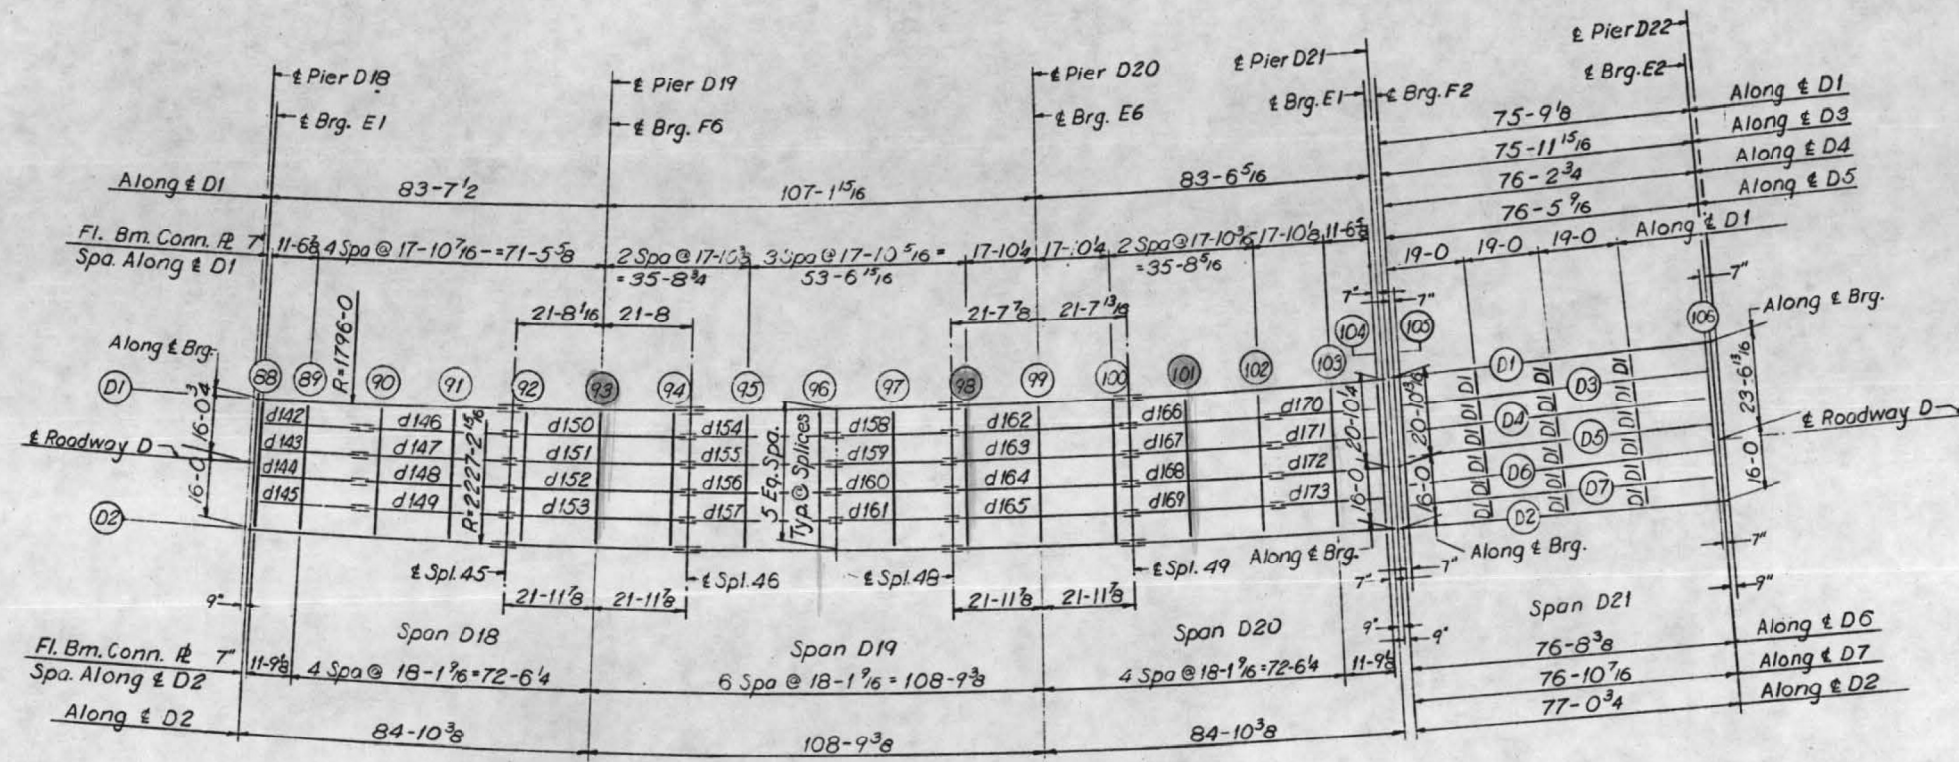 ℄ Pier D18
℄ Brg. E1
℄ Pier D19
℄ Brg. F6
℄ Pier D20
℄ Brg. E6
℄ Pier D21
℄ Brg. E1
℄ Brg. F2
℄ Pier D22
℄ Brg. E2
Along ℄ D1
83-7 1/2
107-1 15/16
83-6 5/16
75-9 1/8
Along ℄ D1
75-11 15/16
Along ℄ D3
76-2 3/4
Along ℄ D4
76-5 9/16
Along ℄ D5
Fl. Bm. Conn. ℞ 7"
Spa. Along ℄ D1
11-6 7/8
4 Spa @ 17-10 7/16 = 71-5 5/8
2 Spa @ 17-10 3/8
= 35-8 3/4
3 Spa @ 17-10 5/16 =
53-6 15/16
17-10 1/4
17-10 1/4
2 Spa @ 17-10 3/16
= 35-8 5/16
17-10 1/8
11-6 5/8
19-0
19-0
19-0
Along ℄ D1
7"
R=1796-0
21-8 1/16
21-8
21-7 7/8
21-7 13/16
7"
7"
Along ℄ Brg.
Along ℄ Brg.
D1
88
89
90
91
92
93
94
95
96
97
98
99
100
101
102
103
104
105
106
16-0 3/4
16-0
℄ Roadway D
D2
d142
d143
d144
d145
d146
d147
d148
d149
R=2227-2 15/16
d150
d151
d152
d153
d154
d155
d156
d157
5 Eq. Spa.
Typ. @ Splices
d158
d159
d160
d161
d162
d163
d164
d165
d166
d167
d168
d169
d170
d171
d172
d173
20-10 1/4
16-0
20-10 13/16
16-0
D1
D3
D4
D5
D6
D7
D2
D1 D1 D1 D1 D1 D1
D1 D1 D1 D1 D1 D1
D1 D1 D1 D1 D1 D1
23-6 13/16
16-0
℄ Roadway D
℄ Spl. 45
℄ Spl. 46
℄ Spl. 48
℄ Spl. 49
Along ℄ Brg.
Along ℄ Brg.
7"
7"
7"
9"
21-11 7/8
21-11 7/8
21-11 7/8
21-11 7/8
9"
9"
9"
Span D18
Span D19
Span D20
Span D21
Fl. Bm. Conn. ℞ 7"
Spa. Along ℄ D2
11-9 1/8
4 Spa @ 18-1 9/16 = 72-6 1/4
6 Spa @ 18-1 9/16 = 108-9 3/8
4 Spa @ 18-1 9/16 = 72-6 1/4
11-9 1/8
76-8 3/8
Along ℄ D6
76-10 7/16
Along ℄ D7
77-0 3/4
Along ℄ D2
Along ℄ D2
84-10 3/8
108-9 3/8
84-10 3/8